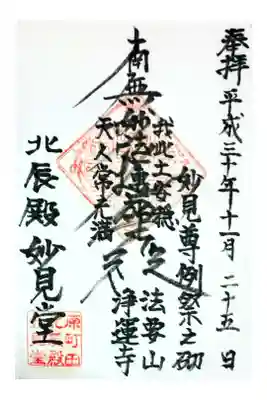 奉拝 平成三十年十一月二十五日
妙見尊例祭之砌
法要山 浄運寺
我此土安穏
南無妙法蓮華経
天人常充満
北辰殿 妙見堂